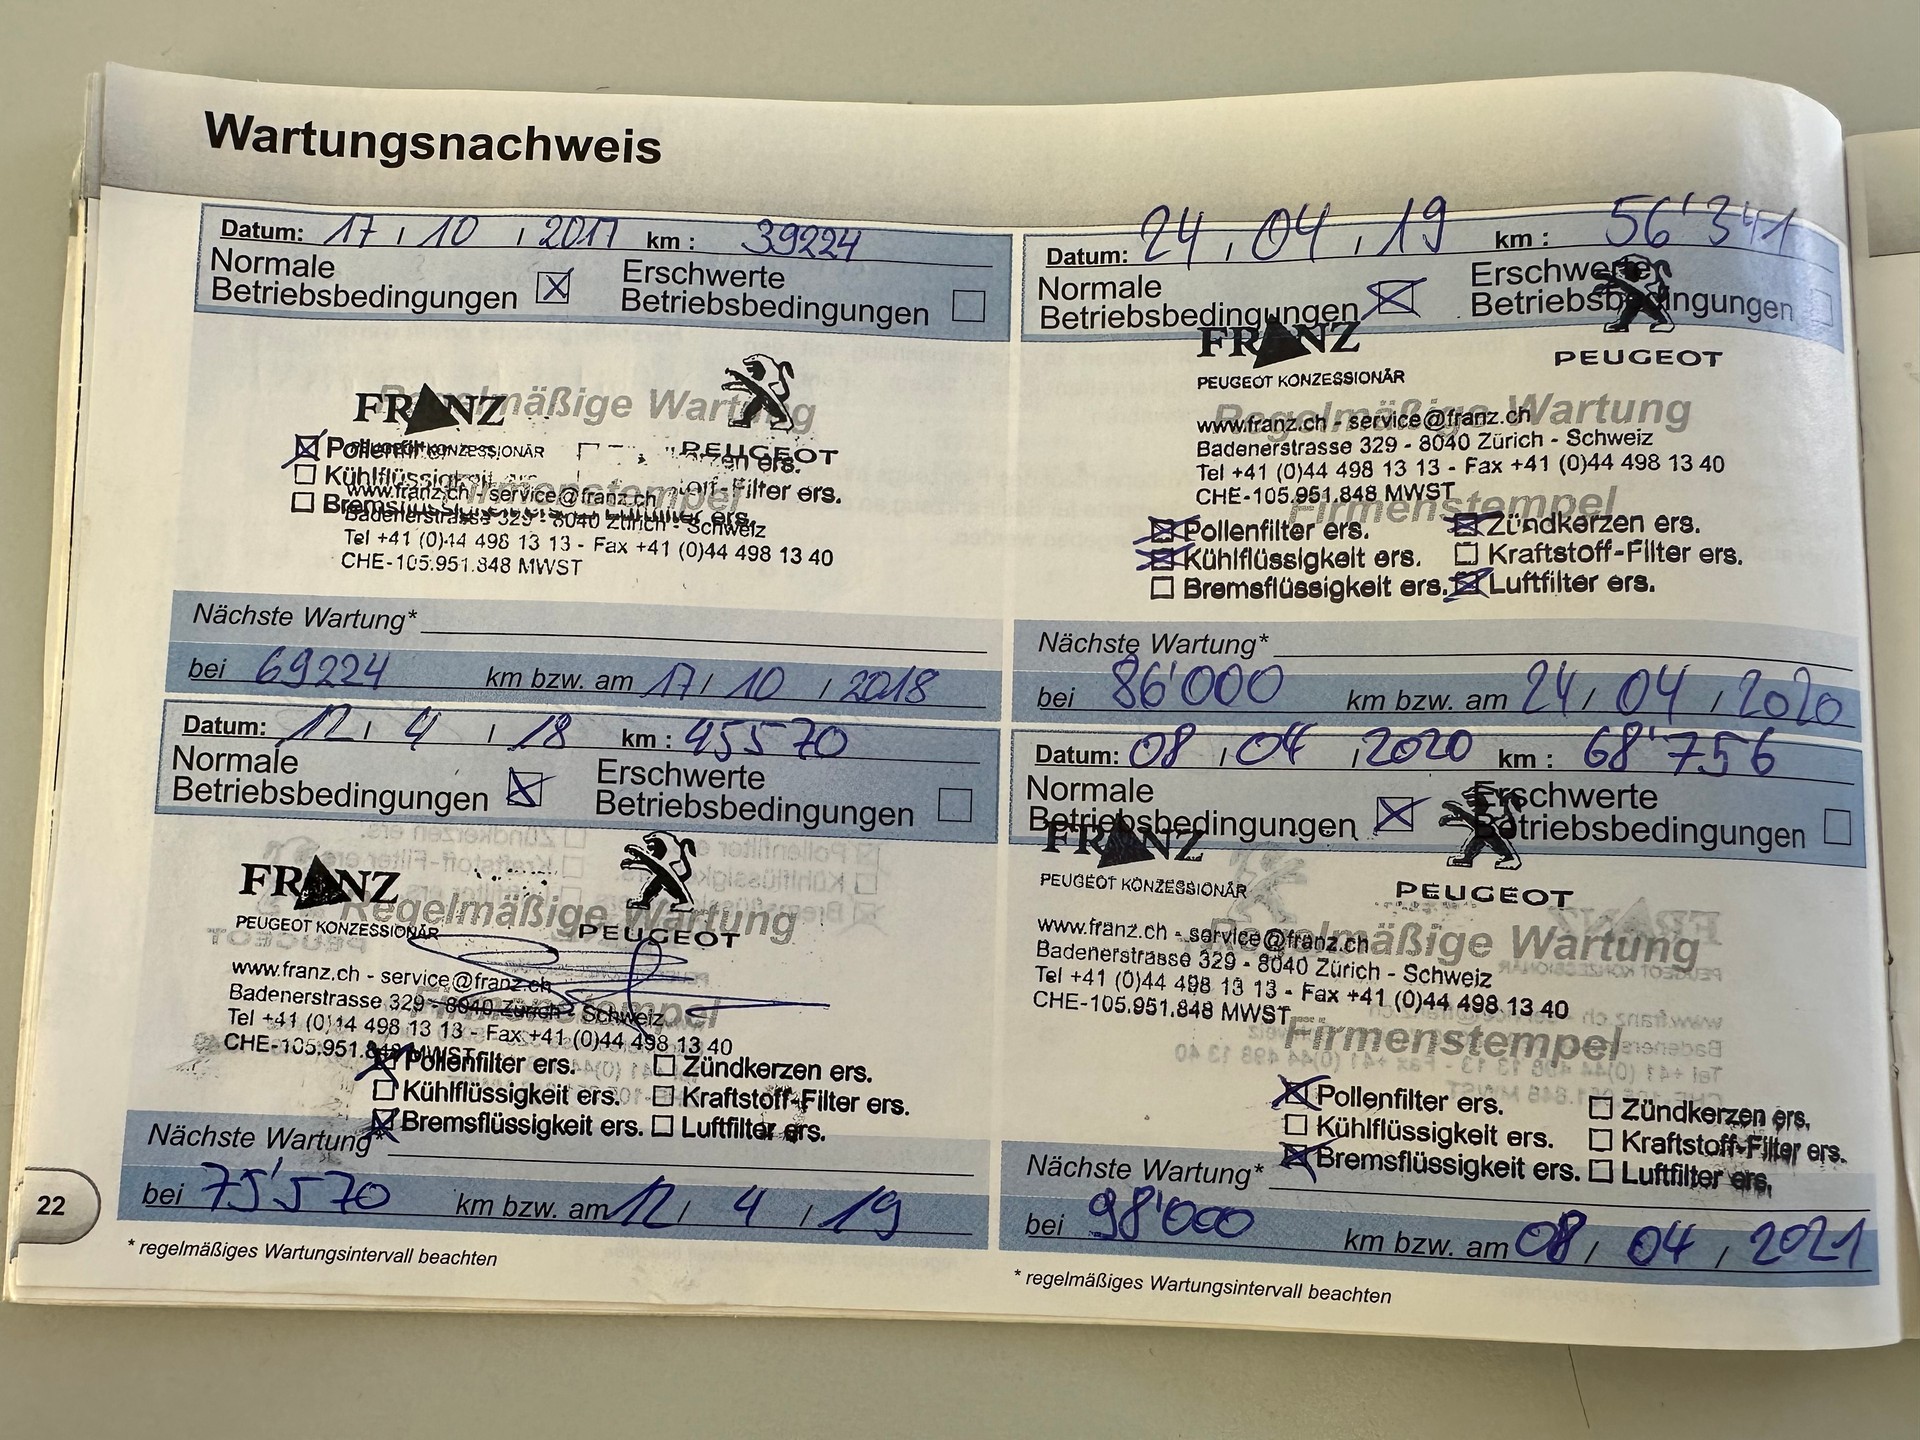 Wartungsnachweis
Datum: 17 / 10 / 2017 km : 39224
Normale Betriebsbedingungen ☒ Erschwerte Betriebsbedingungen ☐
Regelmäßige Wartung
FRANZ
PEUGEOT KONZESSIONÄR
PEUGEOT
☒ Pollenfilter
☐ Kühlflüssigkeit ☐ Kraftstoff-Filter ers.
☐ Bremsflüssigkeit ers. ☐ Luftfilter ers.
Firmenstempel
www.franz.ch - service@franz.ch
Badenerstrasse 329 - 8040 Zürich - Schweiz
Tel +41 (0)44 498 13 13 - Fax +41 (0)44 498 13 40
CHE-105.951.848 MWST
Nächste Wartung*
bei 69224 km bzw. am 17 / 10 / 2018
Datum: 12 / 4 / 18 km : 45570
Normale Betriebsbedingungen ☒ Erschwerte Betriebsbedingungen ☐
FRANZ
PEUGEOT KONZESSIONÄR
PEUGEOT
Regelmäßige Wartung
www.franz.ch - service@franz.ch
Badenerstrasse 329 - 8040 Zürich - Schweiz
Firmenstempel
Tel +41 (0)44 498 13 13 - Fax +41 (0)44 498 13 40
CHE-105.951.848 MWST
☒ Pollenfilter ers. ☐ Zündkerzen ers.
☐ Kühlflüssigkeit ers. ☐ Kraftstoff-Filter ers.
☒ Bremsflüssigkeit ers. ☐ Luftfilter ers.
Nächste Wartung*
bei 75'570 km bzw. am 12 / 4 / 19
* regelmäßiges Wartungsintervall beachten
22
Datum: 24 / 04 / 19 km : 56'341
Normale Betriebsbedingungen ☒ Erschwerte Betriebsbedingungen ☐
FRANZ
PEUGEOT
PEUGEOT KONZESSIONÄR
Regelmäßige Wartung
www.franz.ch - service@franz.ch
Badenerstrasse 329 - 8040 Zürich - Schweiz
Tel +41 (0)44 498 13 13 - Fax +41 (0)44 498 13 40
CHE-105.951.848 MWST
Firmenstempel
☒ Pollenfilter ers. ☒ Zündkerzen ers.
☒ Kühlflüssigkeit ers. ☐ Kraftstoff-Filter ers.
☐ Bremsflüssigkeit ers. ☒ Luftfilter ers.
Nächste Wartung*
bei 86'000 km bzw. am 24 / 04 / 2020
Datum: 08 / 04 / 2020 km : 68'756
Normale Betriebsbedingungen ☒ Erschwerte Betriebsbedingungen ☐
FRANZ
PEUGEOT KONZESSIONÄR
PEUGEOT
Regelmäßige Wartung
www.franz.ch - service@franz.ch
Badenerstrasse 329 - 8040 Zürich - Schweiz
Tel +41 (0)44 498 13 13 - Fax +41 (0)44 498 13 40
CHE-105.951.848 MWST
Firmenstempel
☒ Pollenfilter ers. ☐ Zündkerzen ers.
☐ Kühlflüssigkeit ers. ☐ Kraftstoff-Filter ers.
☒ Bremsflüssigkeit ers. ☐ Luftfilter ers.
Nächste Wartung*
bei 98'000 km bzw. am 08 / 04 / 2021
* regelmäßiges Wartungsintervall beachten